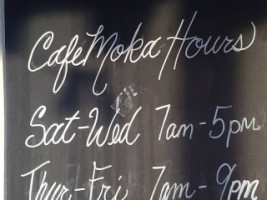 Cafe Moka Hours
Sat-Wed 7am-5pm
Thur-Fri 7am-9pm